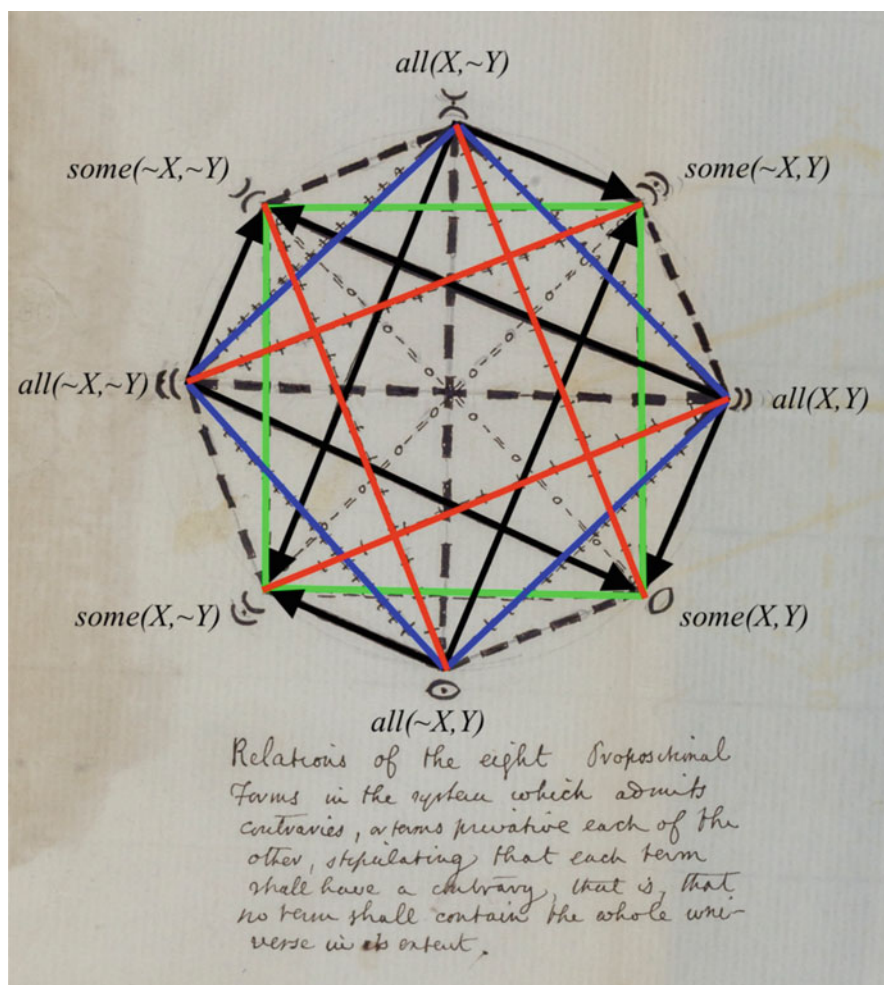 all(X,~Y)
some(~X,~Y)
some(~X,Y)
all(~X,~Y)
all(X,Y)
some(X,~Y)
some(X,Y)
all(~X,Y)
Relations of the eight Propositional
Forms in the system which admits
contraries, or terms privative each of the
other, stipulating that each term
shall have a contrary, that is, that
no term shall contain the whole uni-
verse in its extent.